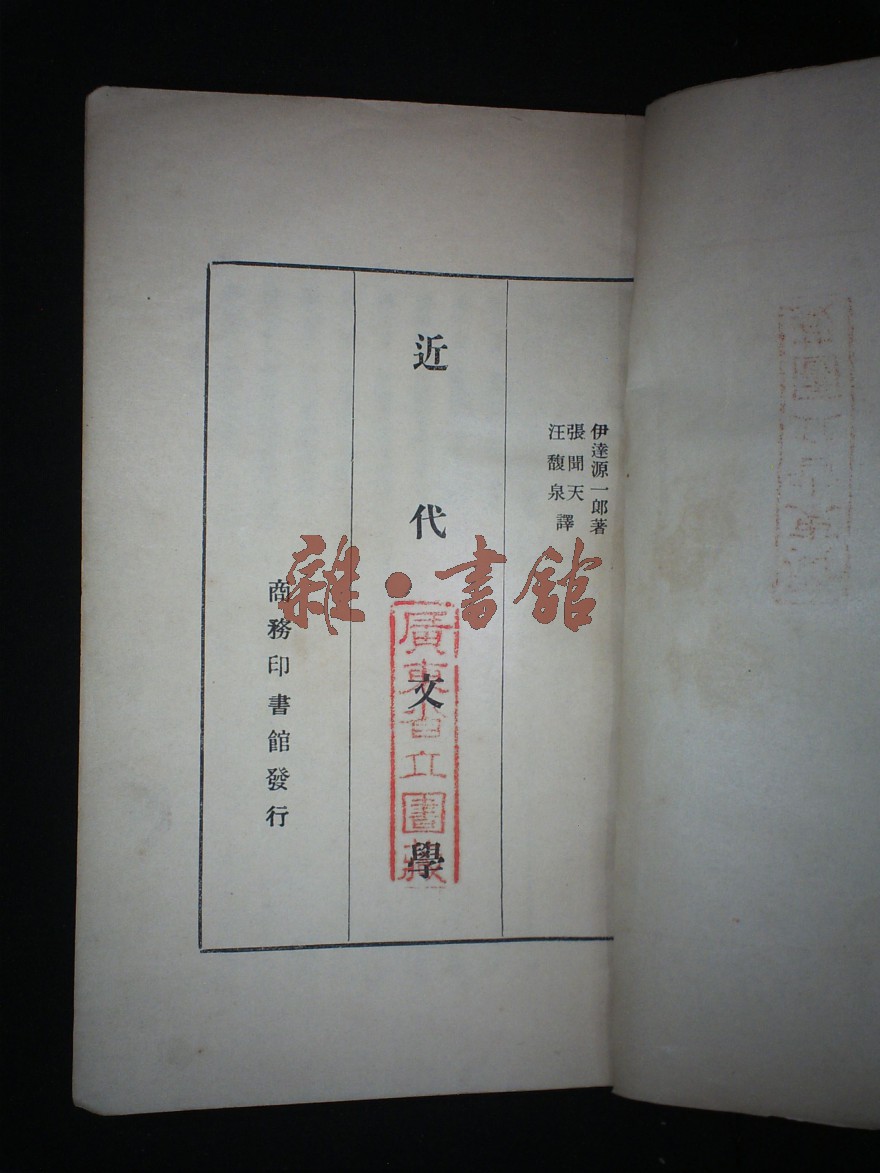 伊達源一郎著
張聞天
汪馥泉譯
近代文學
商務印書館發行
雜·書館
廣東省立圕藏